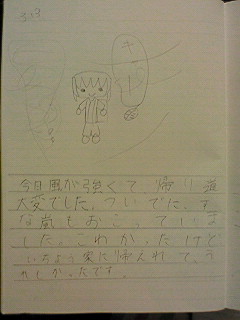 3/3
キャー
今日風が強くて帰り道
大変でした。ついでに、す
な嵐もおこっていま
した。こわかったけど
いちよう家に帰れて、う
れしかったです。